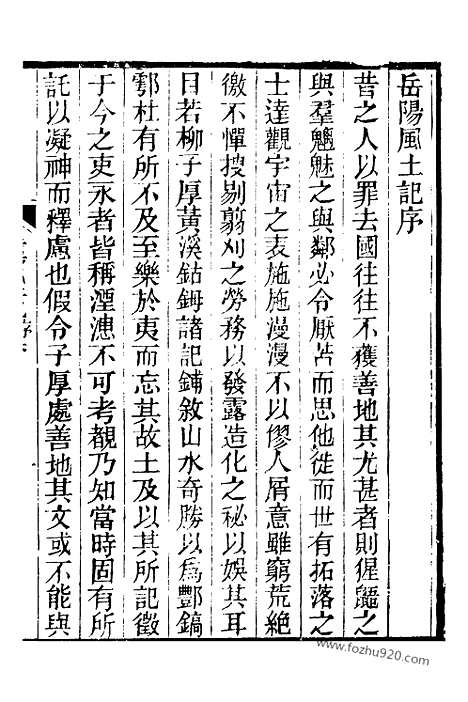 岳陽風土記序
昔之人以罪去國往往不獲善地其尤甚者則猩鼯之
與羣魑魅之與鄰必令厭苦而思他徙而世有拓落之
士達觀宇宙之表施施漫漫不以僇人屑意雖窮荒絶
徼不憚搜剔翦刈之勞務以發露造化之秘以娛其耳
目若柳子厚黃溪鈷鉧諸記鋪敘山水奇勝以爲酆鎬
鄠杜有所不及至樂於夷而忘其故土及以其所記徵
于今之吏永者皆稱湮漶不可考覩乃知當時固有所
託以凝神而釋慮也假令子厚處善地其文或不能與
www.fozhu920.com